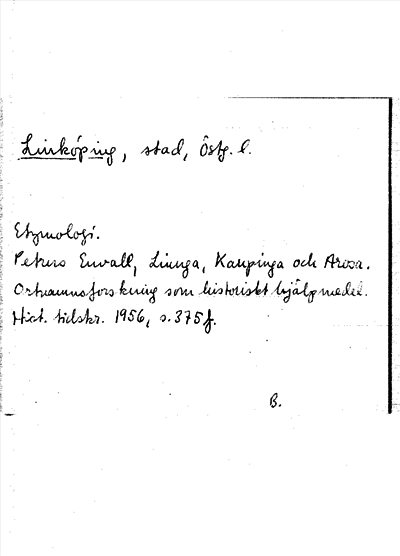 Linköping, stad, Östg. l.
Etymologi.
Petrus Envall, Liunga, Kaupinga och Arosa.
Ortnamnsforskning som historiskt hjälpmedel.
Hist. tidskr. 1956, s. 375 f.
B.